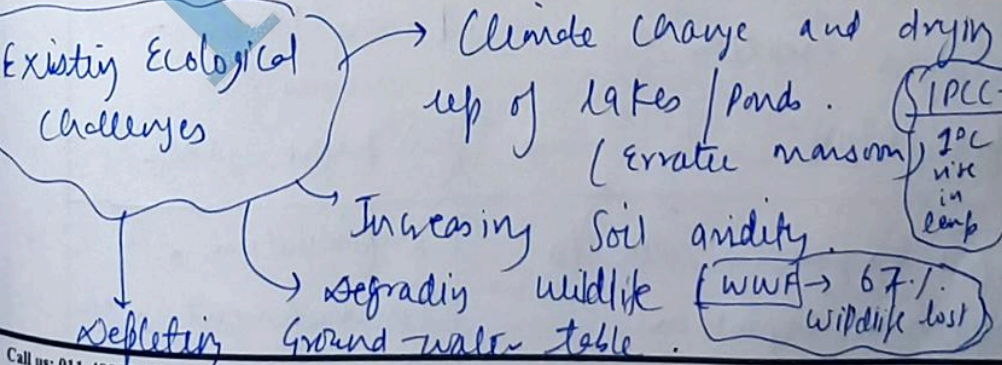 Existing Ecological
Challenges
Climate change and drying
up of lakes/ponds.
(Erratic monsoon)
IPCC-
1°C
rise
in
temp
Increasing Soil aridity.
Degrading wildlife
WWF → 67%
wildlife lost
Depleting Ground-water table.
Call us: 011-